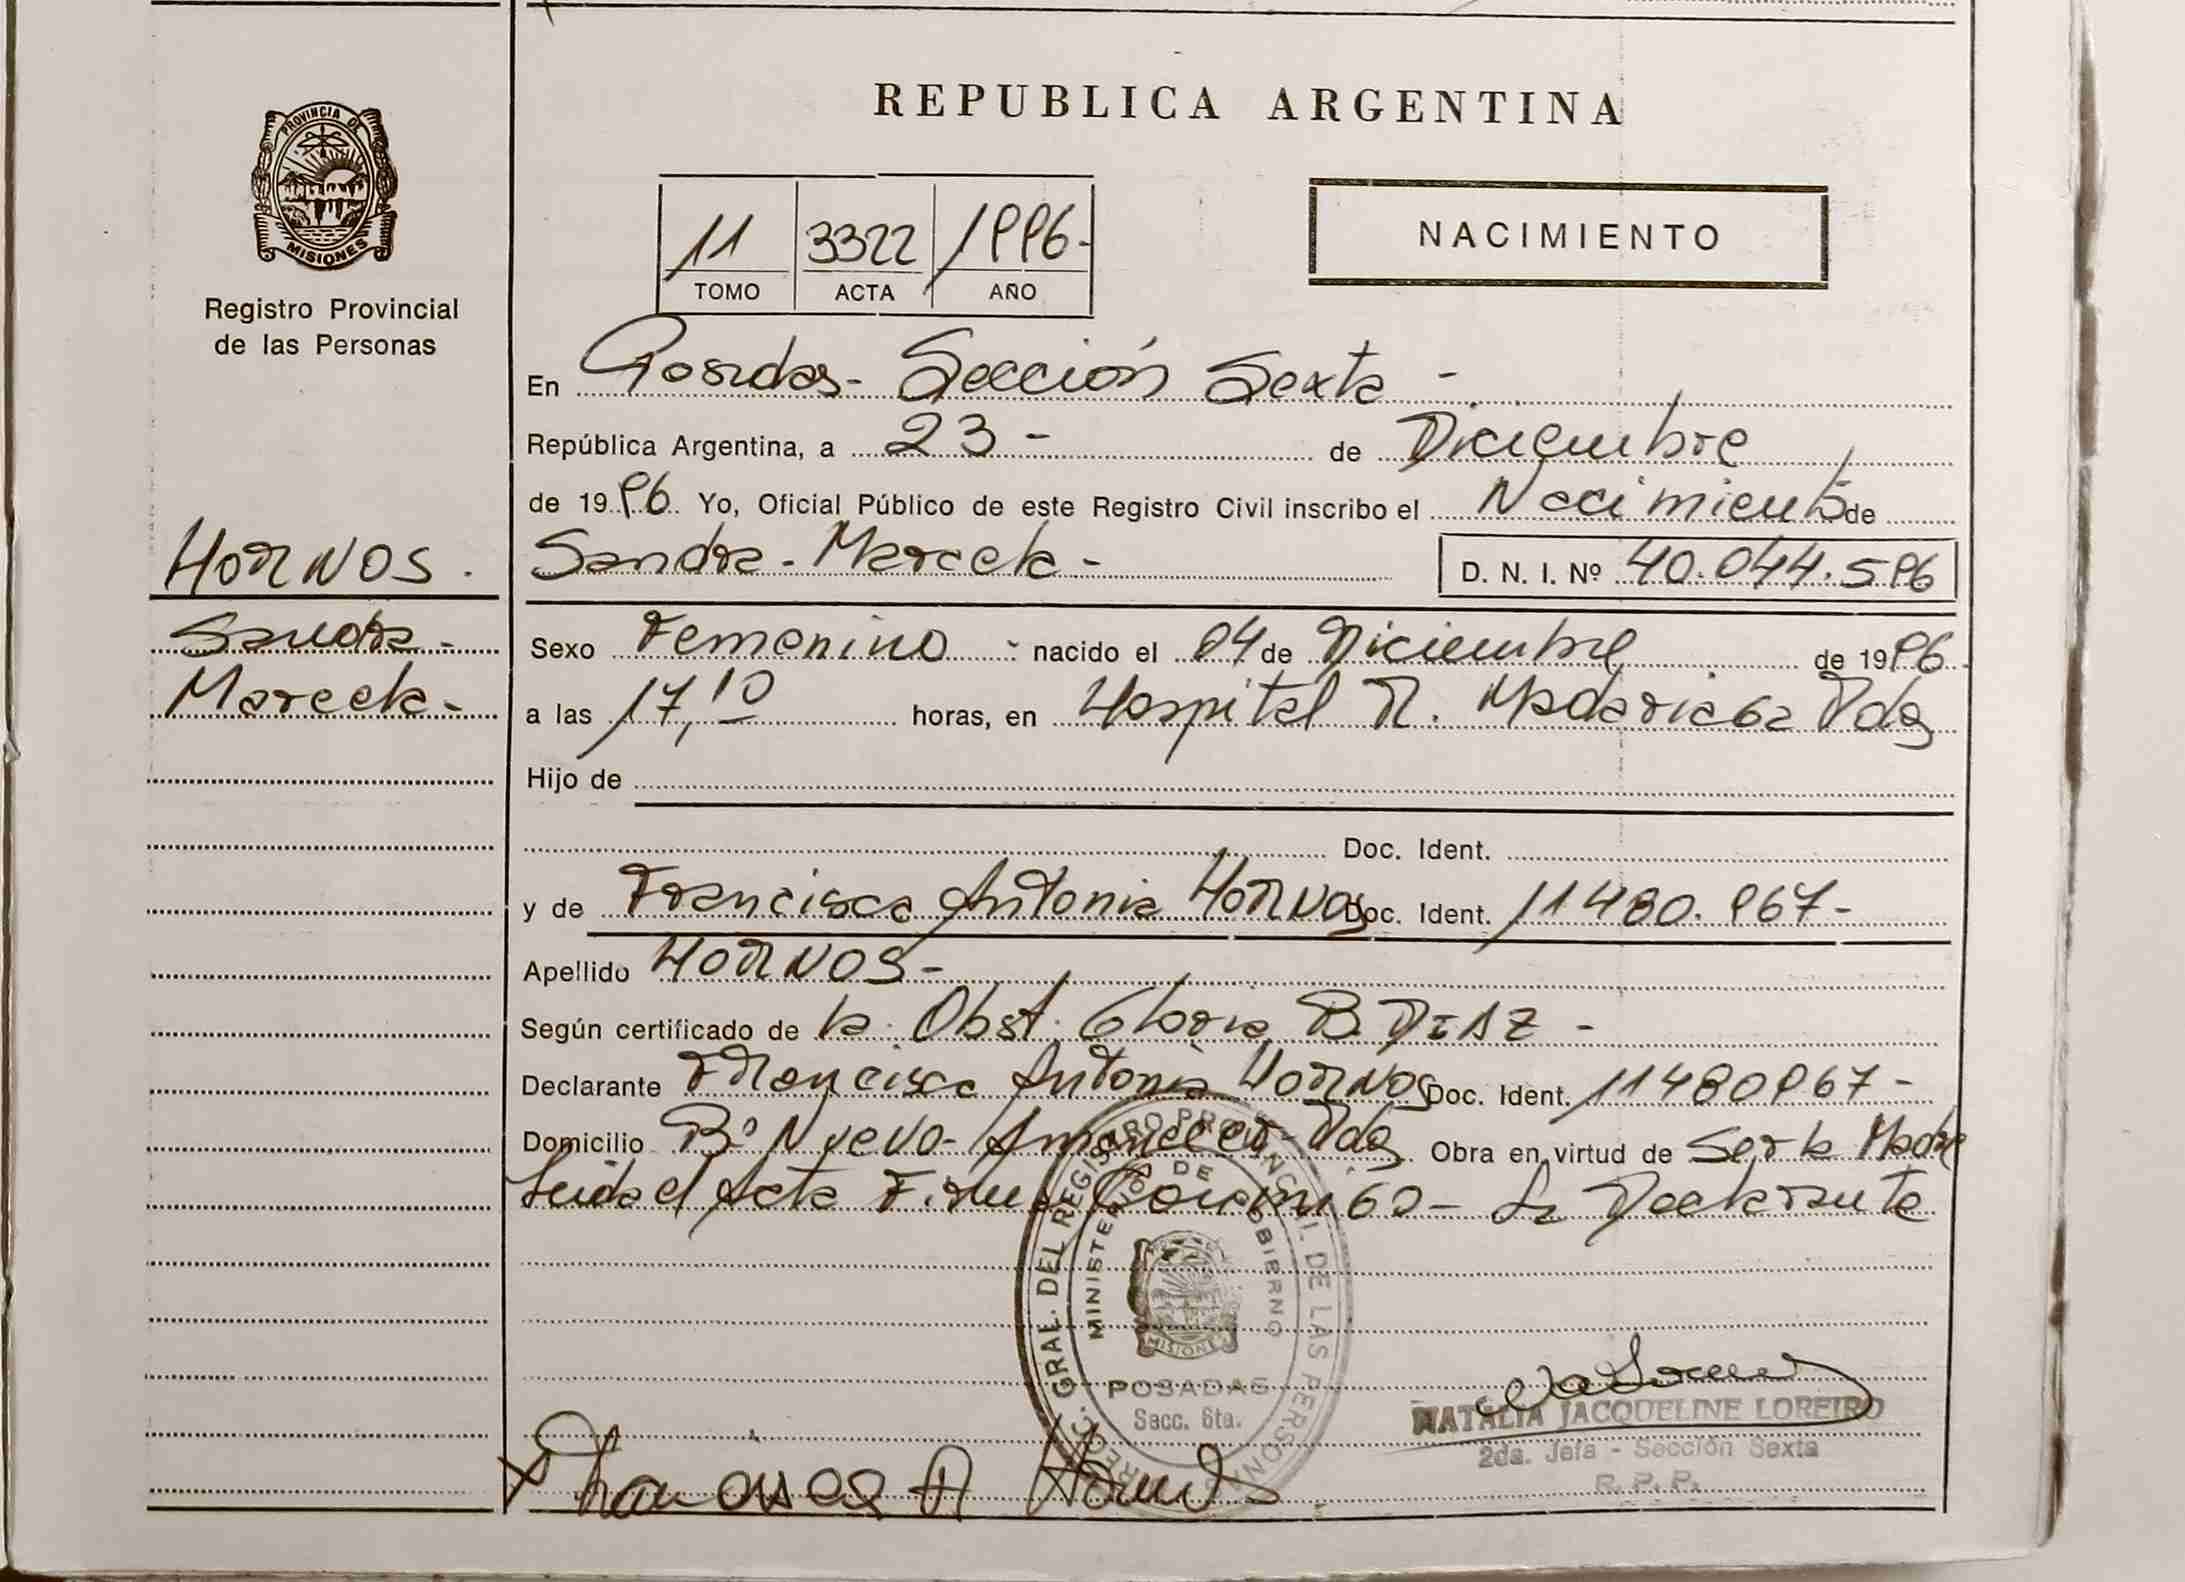 PROVINCIA DE
MISIONES
Registro Provincial
de las Personas
HORNOS.
Sandra-
Marcela-
REPUBLICA ARGENTINA
11 3322 1996-
TOMO ACTA AÑO
NACIMIENTO
En Posadas- Sección Sexta -
República Argentina, a 23 - de Diciembre
de 1996 Yo, Oficial Público de este Registro Civil inscribo el Nacimiento de
Sandra - Marcela - D. N. I. Nº 40.044.596
Sexo Femenino - nacido el 04 de Diciembre de 1996
a las 17,10 horas, en Hospital R. Madariaga Pdas
Hijo de
Doc. Ident.
y de Francisca Antonia HORNOS Doc. Ident. 11480.967-
Apellido HORNOS-
Según certificado de la Obst. Gloria B. DIAZ -
Declarante Francisca Antonia HORNOS Doc. Ident. 11480967-
Domicilio Bº Nuevo- Amanecer- Pdas Obra en virtud de Ser la Madre
Leida el Acta Firma Conmigo- La Declarante
REG. GRAL. DEL REGISTRO PROVINCIAL DE LAS PERSONAS
MINISTERIO DE GOBIERNO
MISIONES
POSADAS
Secc. 6ta.
NATALIA JACQUELINE LOREIRO
2da. Jefa - Sección Sexta
R. P. P.
Francisca A Hornos